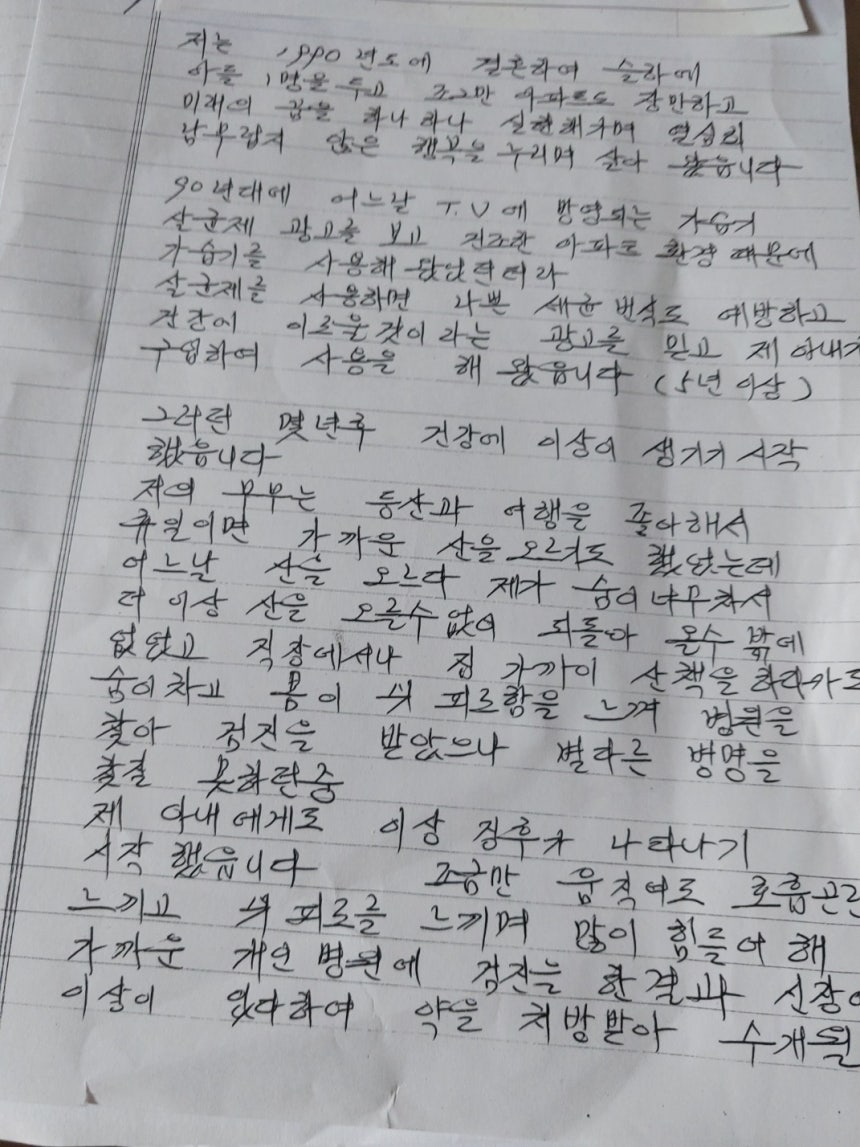 저는 1990년도에 결혼하여 슬하에
아들 1명을 두고 조그만 아파트도 장만하고
미래의 꿈을 하나 하나 실현해가며 열심히
남부럽지 않은 행복을 누리며 살아 왔습니다
90년대에 어느날 T.V에 방영되는 가습기
살균제 광고를 보고 건조한 아파트 환경 때문에
가습기를 사용해 왔었던터라
살균제를 사용하면 나쁜 세균번식도 예방하고
건강에 이로울것이라는 광고를 믿고 제 아내가
구입하여 사용을 해 왔읍니다 (5년이상)
그러던 몇년후 건강에 이상이 생기기 시작
했읍니다
저의 부부는 등산과 여행을 좋아해서
휴일이면 가까운 산을 오르기도 했었는데
어느날 산을 오르다 제가 숨이 너무차서
더 이상 산을 오를수 없어 되돌아 올수 밖에
없었고 직장에서나 집 가까이 산책을 하다가도
숨이차고 몸이 쉬 피로함을 느껴 병원을
찾아 검진을 받았으나 별다른 병명을
찾질 못하던중
제 아내에게도 이상 징후가 나타나기
시작 했읍니다 조금만 움직여도 호흡곤란
느끼고 쉬 피로를 느끼며 많이 힘들어 해
가까운 개인 병원에 검진을 한결과 신장에
이상이 있다하여 약을 처방받아 수개월